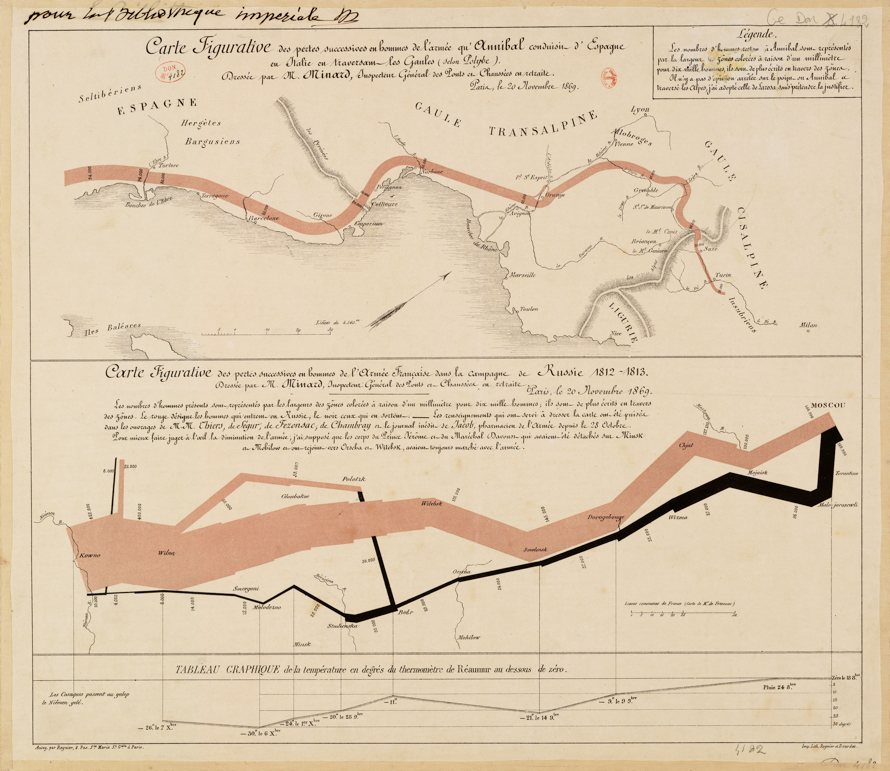 pour la Bibliothèque impériale
DON
4182
Carte Figurative des pertes successives en hommes de l'armée qu'Annibal conduisit d'Espagne
en Italie en traversant les Gaules (selon Polybe).
Dressée par M. Minard, Inspecteur Général des Ponts et Chaussées en retraite.
Paris, le 20 Novembre 1869.
Légende.
Les nombres d'hommes restant à Annibal sont représentés
par la largeur zônes colorées à raison d'un millimètre
pour dix mille hommes, ils sont de plus écrits en travers des zônes.
Il n'y a pas d'opinion arrêtée sur le point où Annibal a
traversé les Alpes, j'ai adopté celle de Larosa, sans prétendre la justifier.
Seltibériens
ESPAGNE
Ilergètes
Bargusiens
Tortose
Bouches de l'Ebre
Tarragone
Barcelone
Girone
Emporium
Collioure
Perpignan
les Pyrénées
Narbonne
GAULE TRANSALPINE
Lyon
Allobroges
Vienne
Pt. St. Esprit
Orange
Avignon
Bouches du Rhône
Marseille
Toulon
Grenoble
le Mt. Cenis
Briançon
Suze
Turin
les Alpes
LIGURIE
Nice
GAULE CISALPINE
Insubriens
Milan
Iles Baléares
Carte Figurative des pertes successives en hommes de l'Armée Française dans la campagne de Russie 1812-1813.
Dressée par M. Minard, Inspecteur Général des Ponts et Chaussées en retraite.
Paris, le 20 Novembre 1869.
Les nombres d'hommes présents sont représentés par les largeurs des zônes colorées à raison d'un millimètre pour dix mille hommes; ils sont de plus écrits en travers
des zônes. Le rouge désigne les hommes qui entrent en Russie, le noir ceux qui en sortent. Les renseignements qui ont servi à dresser la carte ont été puisés
dans les ouvrages de M.M. Thiers, de Ségur, de Fezensac, de Chambray et le journal inédit de Jacob, pharmacien de l'Armée depuis le 28 Octobre.
Pour mieux faire juger à l'œil la diminution de l'armée, j'ai supposé que les corps du Prince Jérôme et du Maréchal Davoust qui avaient été détachés sur Minsk
et Mohilow et ont rejoint vers Orscha et Witebsk, avaient toujours marché avec l'armée.
MOSCOU
Chjat
Mojaisk
Tarantino
Malo-jarosewli
Wixma
Dorogobouge
Smolensk
Polotzk
Gloubokoe
Witebsk
Kowno
Wilna
Orscha
Mohilow
Bobr
Studienska
Minsk
Molodezno
Smorgoni
TABLEAU GRAPHIQUE de la température en degrés du thermomètre de Réaumur au dessous de zéro.
Les Cosaques passent au galop
le Niémen gelé.
Zéro le 18 8bre
Pluie 24 8bre
— 9° le 9 9bre
— 21° le 14 9bre
— 11°
— 20° le 28 9bre
— 24° le 1er Xbre
— 30° le 6 Xbre
— 26° le 7 Xbre
Autog. par Regnier, 8. Pas. Ste Marie St Gain à Paris.
Imp. Lith. Regnier et Dourdet
4182